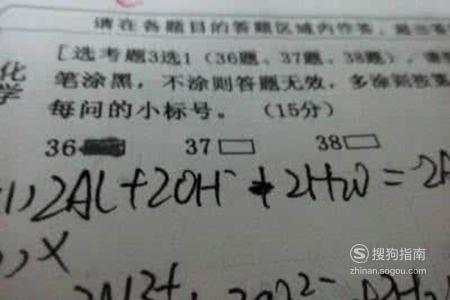 请在各题目的答题区域内作答,超出答
[选考题3选1(36题、37题、38题),请
笔涂黑,不涂则答题无效,多涂则按第
化学
每问的小标号。(15分)
36 37 38
(1) 2Al+2OH⁻+2H₂O=2A
搜狗指南
zhinan.sogou.com